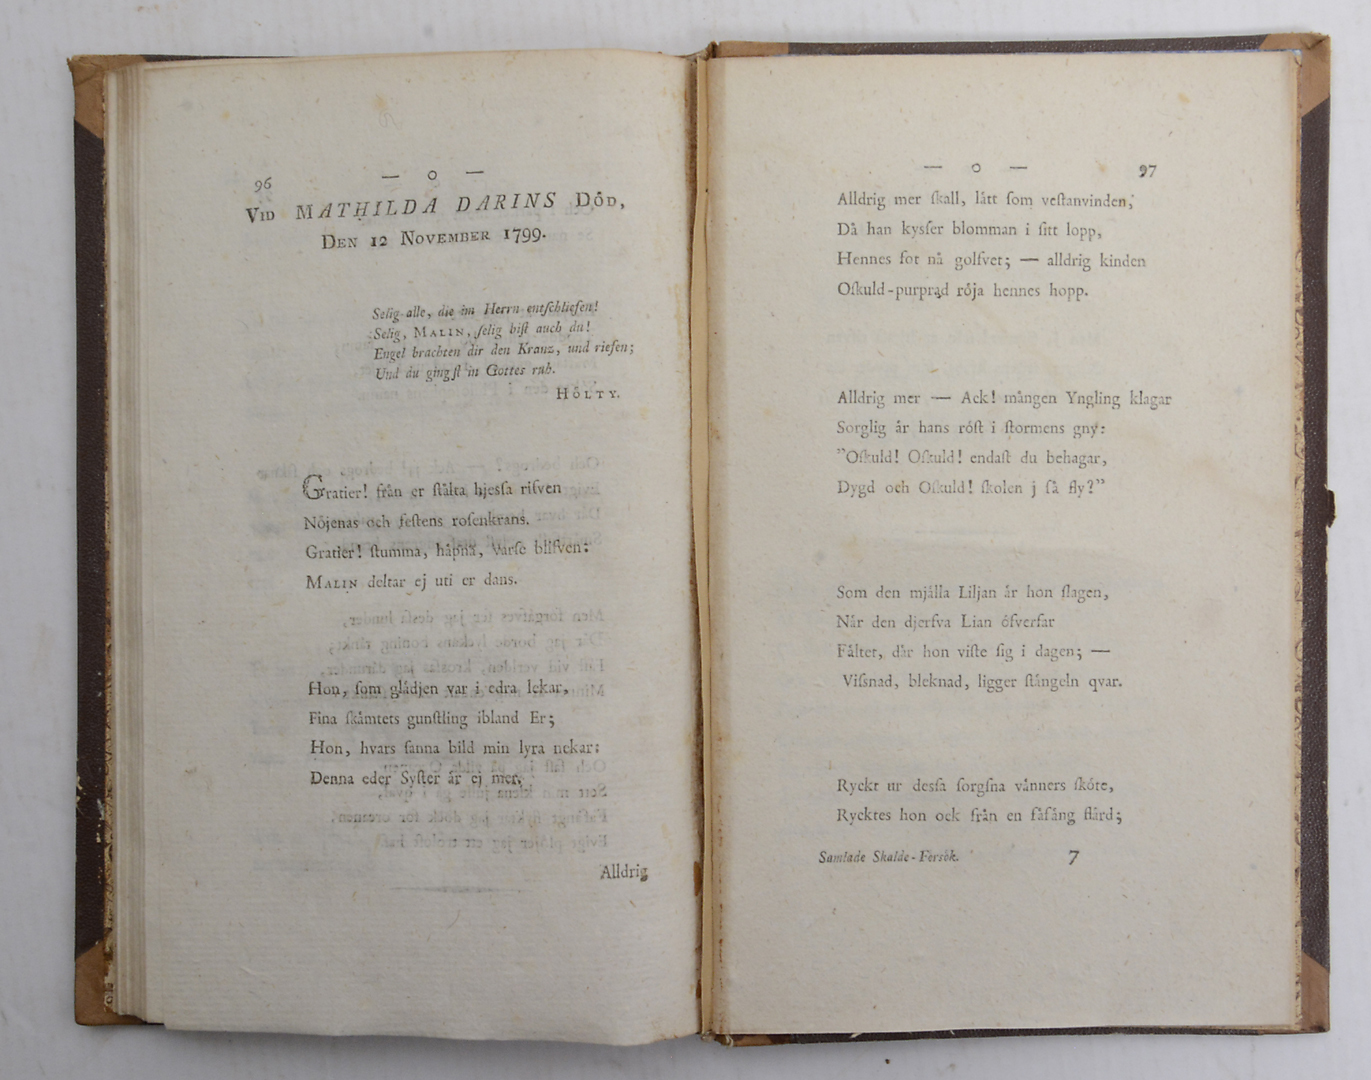 96
— o —
Vid MATHILDA DARINS Död,
Den 12 November 1799.
Selig alle, die im Herrn entſchliefen!
Selig, Malin, ſelig biſt auch du!
Engel brachten dir den Kranz, und riefen;
Und du gingſt in Gottes ruh.
Hölty.
Gratier! från er ſtålta hjeſſa rifven
Nöjenas och feſtens roſenkrans.
Gratier! ſtumma, håpna, varſe blifven:
Malin deltar ej uti er dans.
Hon, ſom glädjen var i edra lekar,
Fina ſkämtets gunſtling ibland Er;
Hon, hvars ſanna bild min lyra nekar:
Denna eder Syſter är ej mer.
Alldrig
— o —
97
Alldrig mer ſkall, lätt ſom veſtanvinden,
Då han kysſer blomman i ſitt lopp,
Hennes fot nå golfvet; — alldrig kinden
Oſkuld-purprad röja hennes hopp.
Alldrig mer — Ack! mången Yngling klagar
Sorglig är hans röſt i ſtormens gny:
"Oſkuld! Oſkuld! endaſt du behagar,
Dygd och Oſkuld! ſkolen j ſå fly?"
Som den mjälla Liljan är hon ſlagen,
När den djerfva Lian öfverfar
Fältet, där hon viſte ſig i dagen; —
Viſsnad, bleknad, ligger ſtängeln qvar.
Ryckt ur desſa ſorgſna vänners ſköte,
Rycktes hon ock från en fåfäng flärd;
Samlade Skalde-Försök.
7